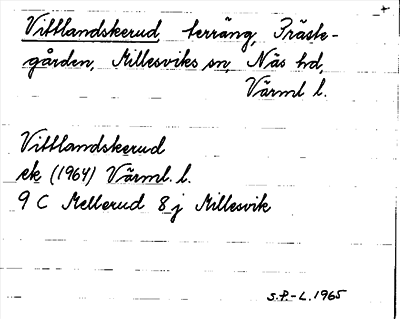 +
Vittlandskerud terräng, Präste-
gården, Millesviks sn, Näs hd,
Värml l.
Vittlandskerud
ek (1964) Värml. l.
9 C Mellerud 8 j Millesvik
S.P.-L. 1965